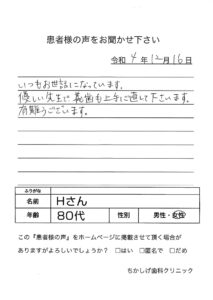 患者様の声をお聞かせ下さい
令和 4 年 12 月 16 日
いつもお世話になっています。
優しい先生で義歯も上手に直して下さいます。
有難うございます。
ふりがな
名前 Hさん
年齢 80代 性別 男性・女性
この『患者様の声』をホームページに掲載させて頂く場合が
ありますがよろしいでしょうか？ □はい □匿名で □だめ
ちかしげ歯科クリニック